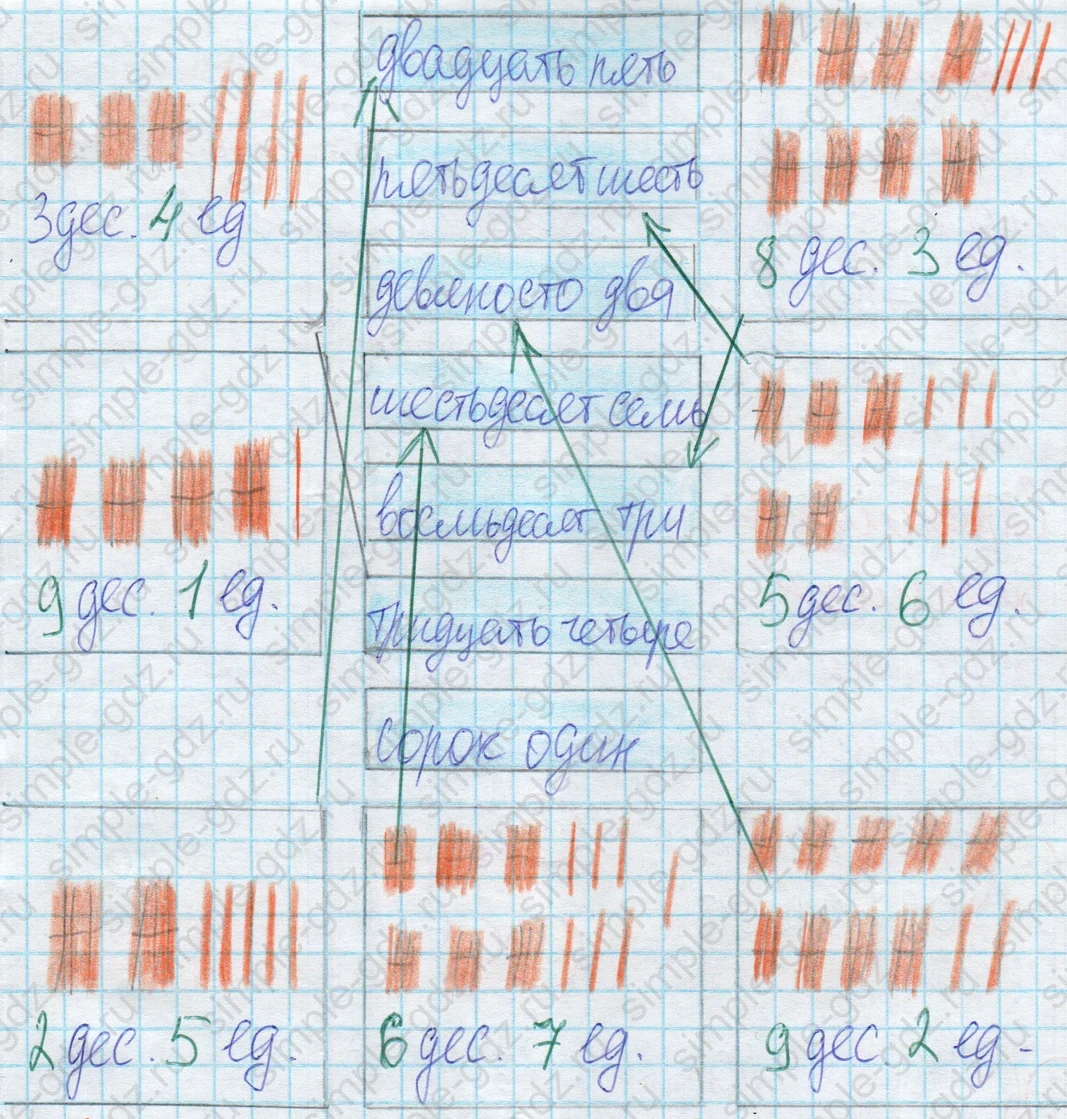 двадцать пять
пятьдесят шесть
девяносто два
шестьдесят семь
восмьдесят три
тридцать четыре
сорок один
3 дес. 4 ед
8 дес. 3 ед.
9 дес. 1 ед.
5 дес. 6 ед.
2 дес. 5 ед.
6 дес. 7 ед.
9 дес 2 ед.
simple-gdz.ru